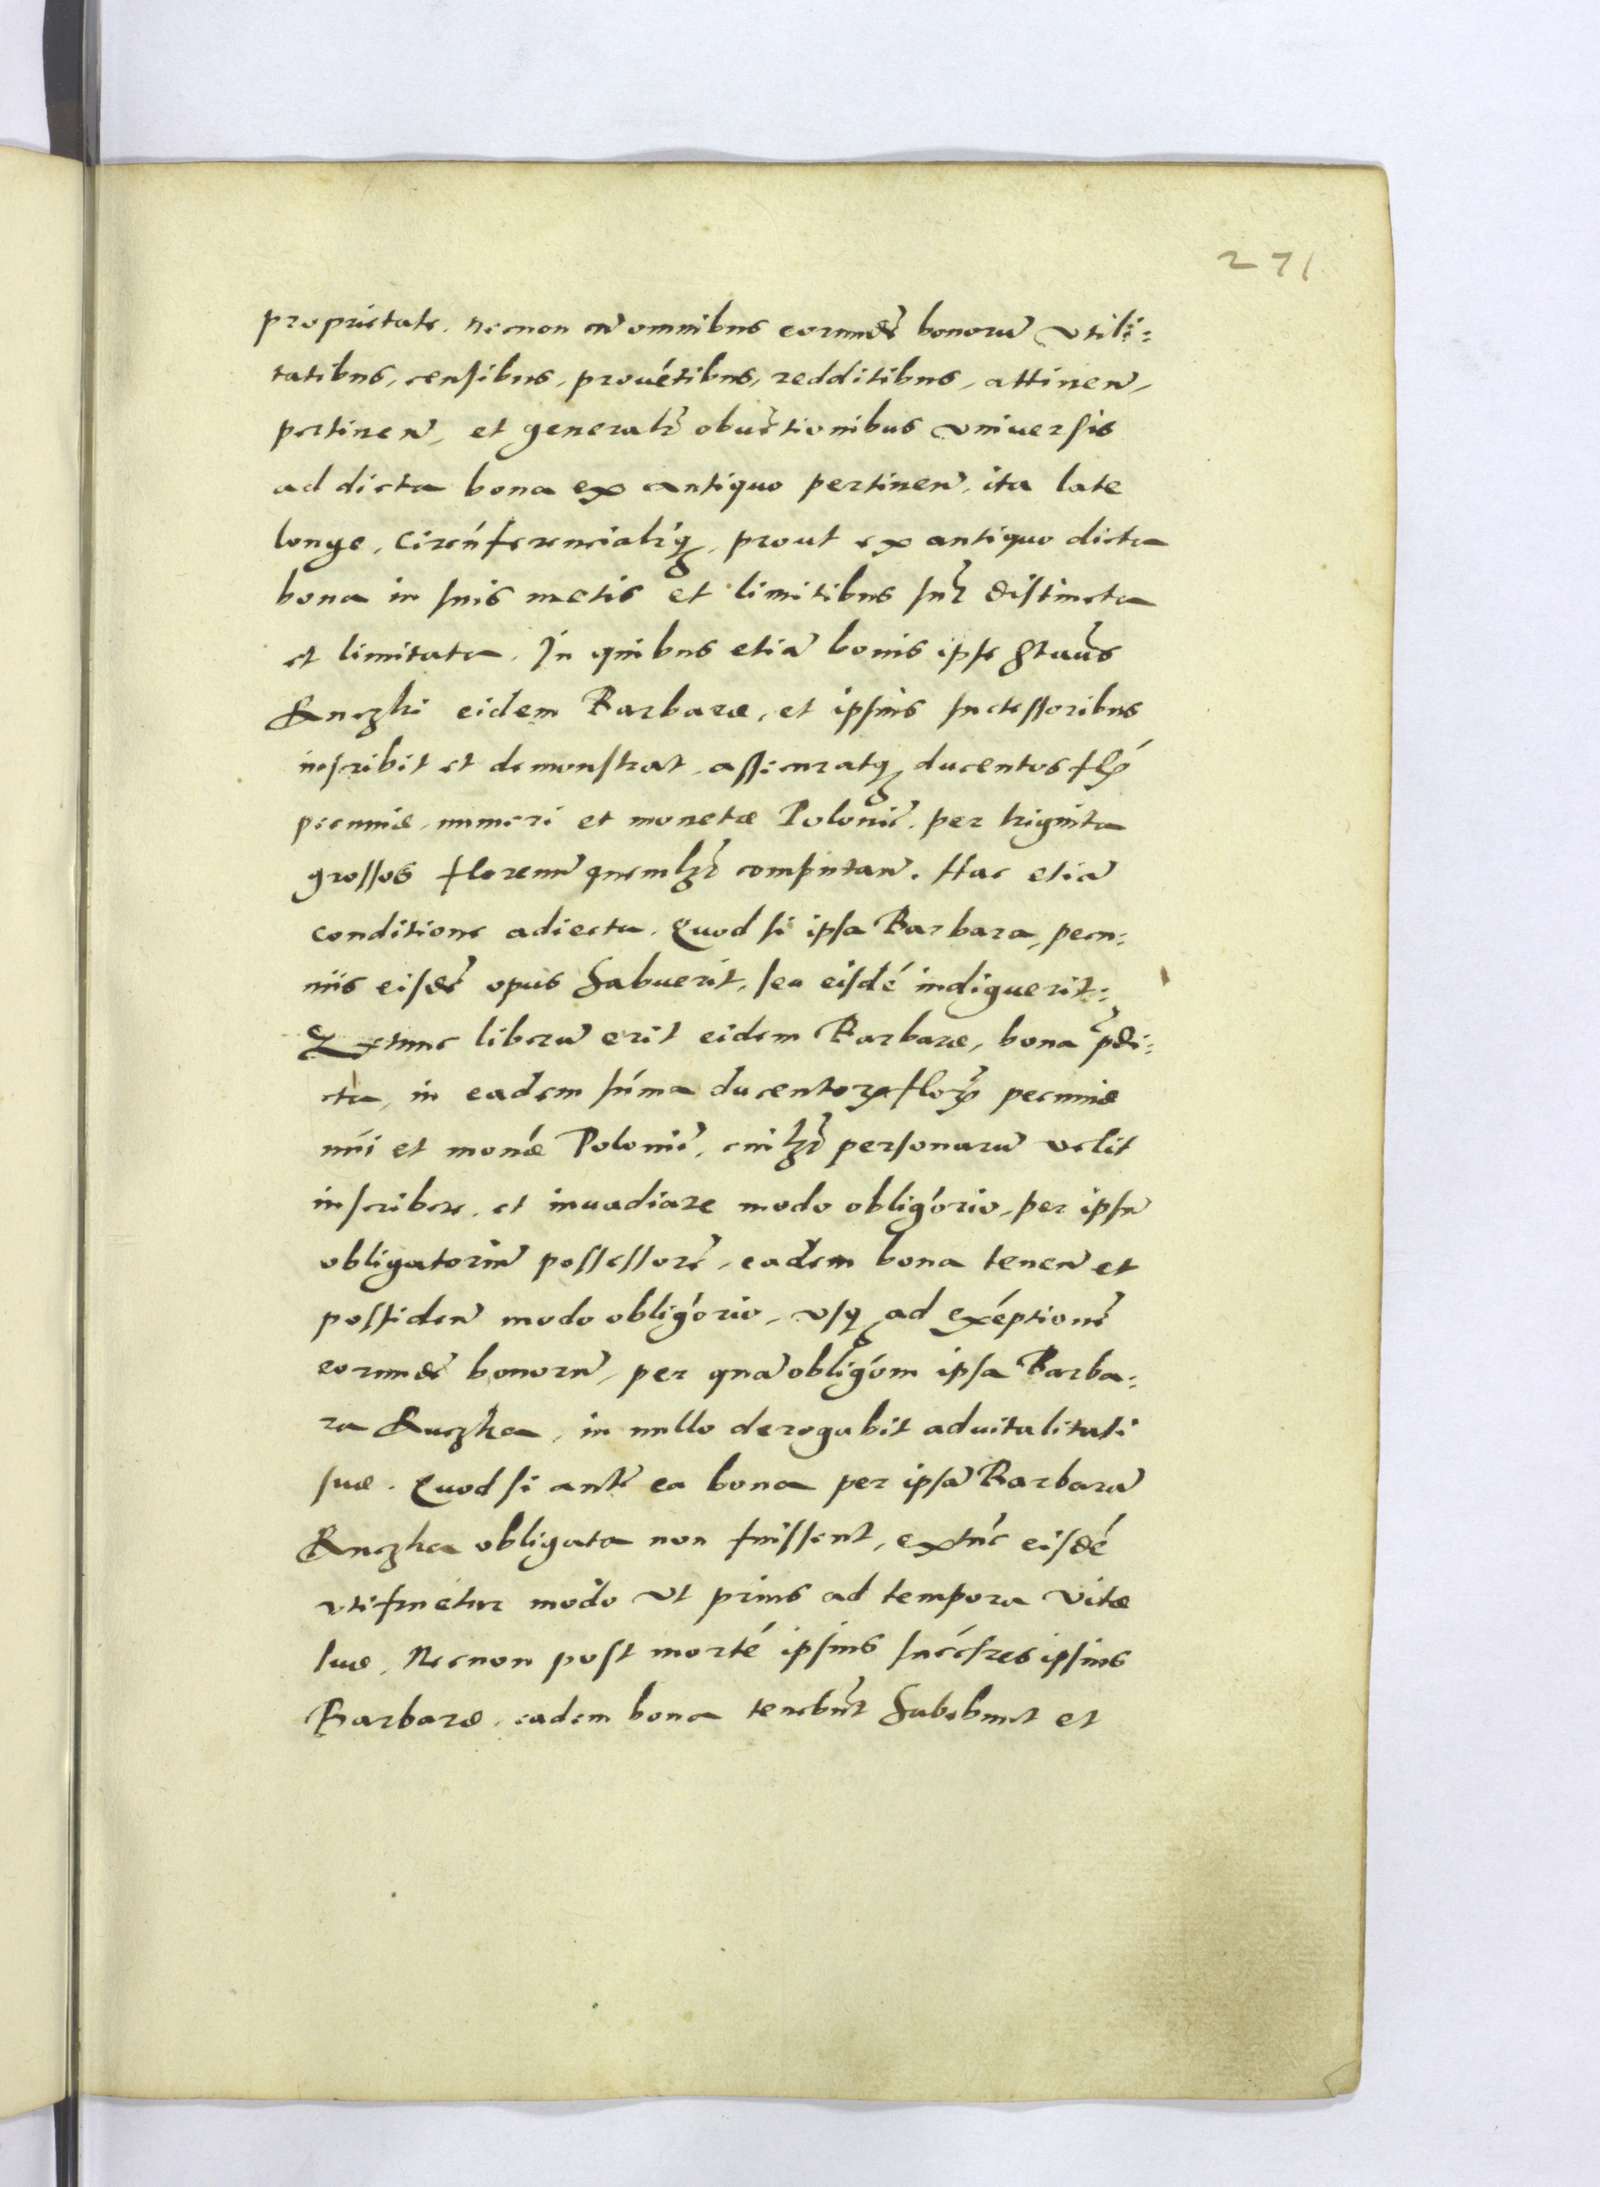 271
proprietate. necnon cũ omnibus eorumdẽ bonorũ vtili:
tatibus, censibus, prouẽtibus, redditibus, attinen̄,
pertinen̄, et generalr̃ obuẽtionibus vniuersis
ad dicta bona ex antiquo pertinen̄, ita late
longe, circũferencialr̃q, prout ex antiquo dicta
bona in suis metis et limitibus sũt distincta
et limitata. In quibus etiã bonis ipse
eidem Barbaræ, et ipsius successoribus
inscribit et demonstrat, assicuratq ducentos flõ
pecuniæ, numeri et monetæ Poloniẽ. per triginta
grossos florenũ quemlꝫ computan̄. Hac etiã
conditione adiecta. Quod si ipsa Barbara, pecu:
niis eisdẽ opus habuerit, seu eisdẽ indiguerit:
Extunc liberũ erit eidem Barbaræ, bona p̃di:
cta, in eadem sũma ducentorꝝ florꝝ pecuniæ
nũi et monæ̃ Poloniẽ, cuilꝫ personarũ velit
inscribere, et inuadiare modo oblig̃orio, per ipsũ
obligatoriũ possessorẽ, eadem bona tenen̄ et
possiden̄ modo oblig̃orio, vsq ad exẽptionẽ
eorumdẽ bonorũ, per quã oblig̃om ipsa Barba:
ra Ruczka, in nullo derogabit aduitalitati
suæ. Quod si autẽ ea bona per ipsã Barbarã
Ruczka obligata non fuissent, extũc eisdẽ
vtifruetur modo vt prius ad tempora vitæ
suæ. Necnon post mortẽ ipsius succ̃sres ipsius
Barbaræ, eadem bona tenebũt habebunt et